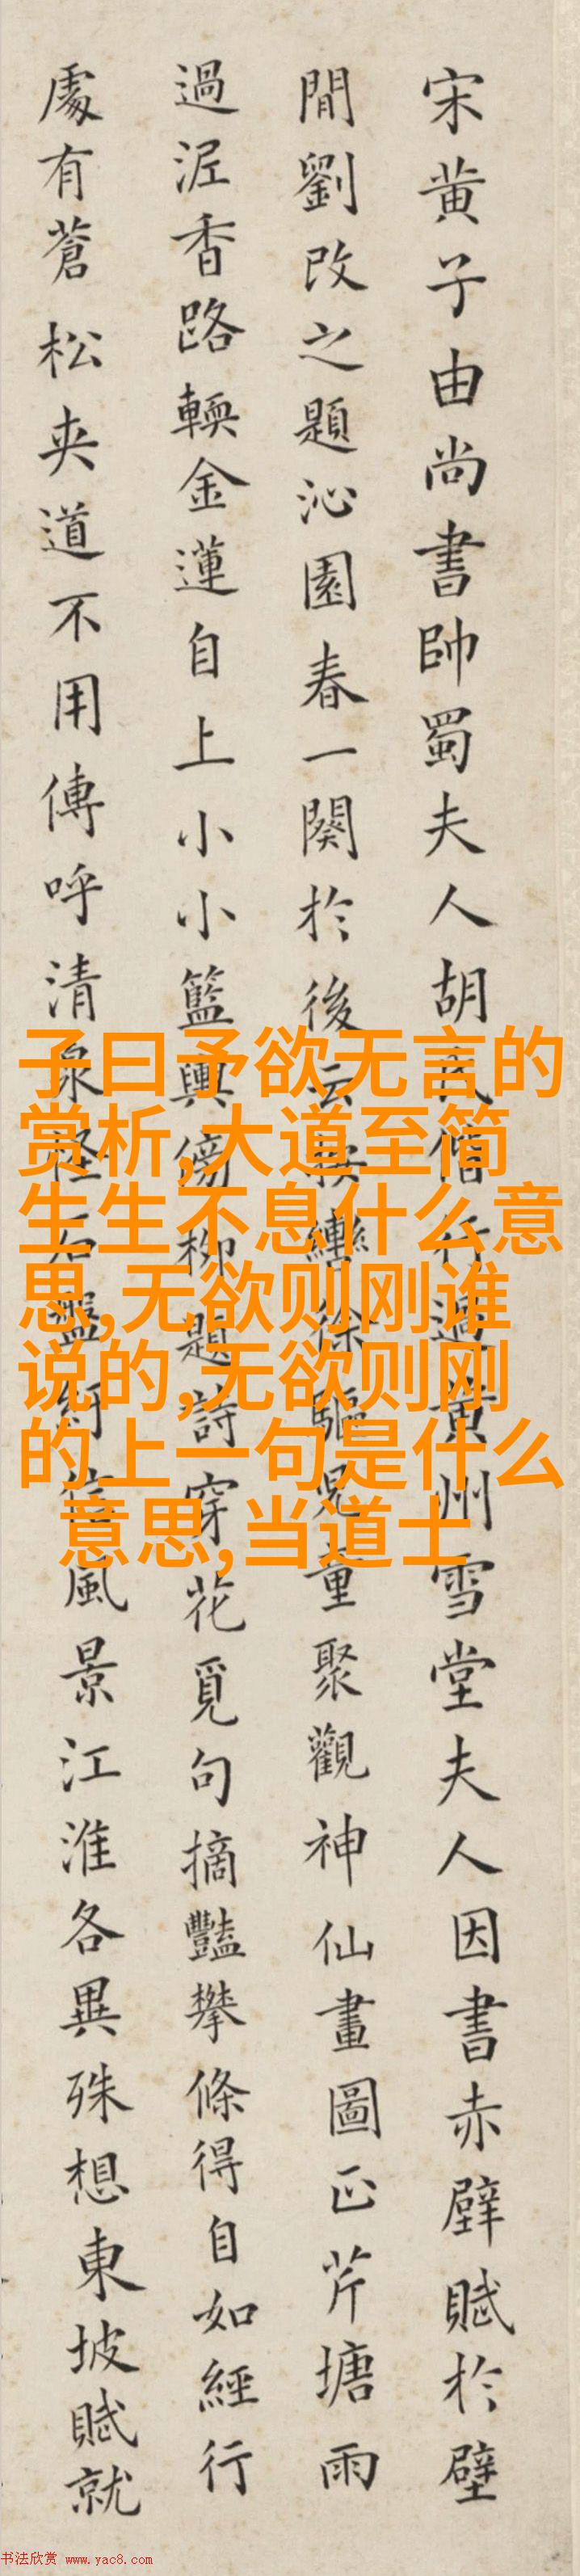 宋黄子由尚書帥蜀夫人胡氏偕行過黄州雪堂夫人因書赤壁賦於壁
間劉改之題沁園春一闋於後云按轡徐驅兒童聚觀神仙畫圖正芹塘雨
過泥香路輭金蓮自上小小籃輿傍柳題詩穿花覓句摘豔攀條得自如經行
處有蒼松夾道不用傳呼清泉怪石盤紆信風景江淮各異殊想東坡賦就
子曰予欲无言的
赏析,大道至简
生生不息什么意
思,无欲则刚谁
说的,无欲则刚
的上一句是什么
意思,当道士
书法欣赏 www.yac8.com